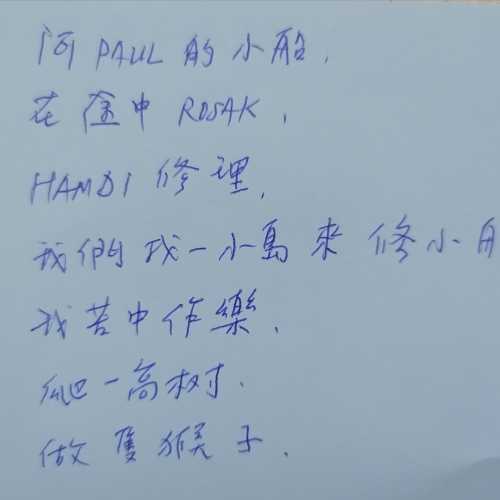 阿 PAUL 的小船,
在途中 ROSAK,
HAMDI 修理,
我們找一小島來修小
我苦中作樂,
爬一高树.
做隻猴子.